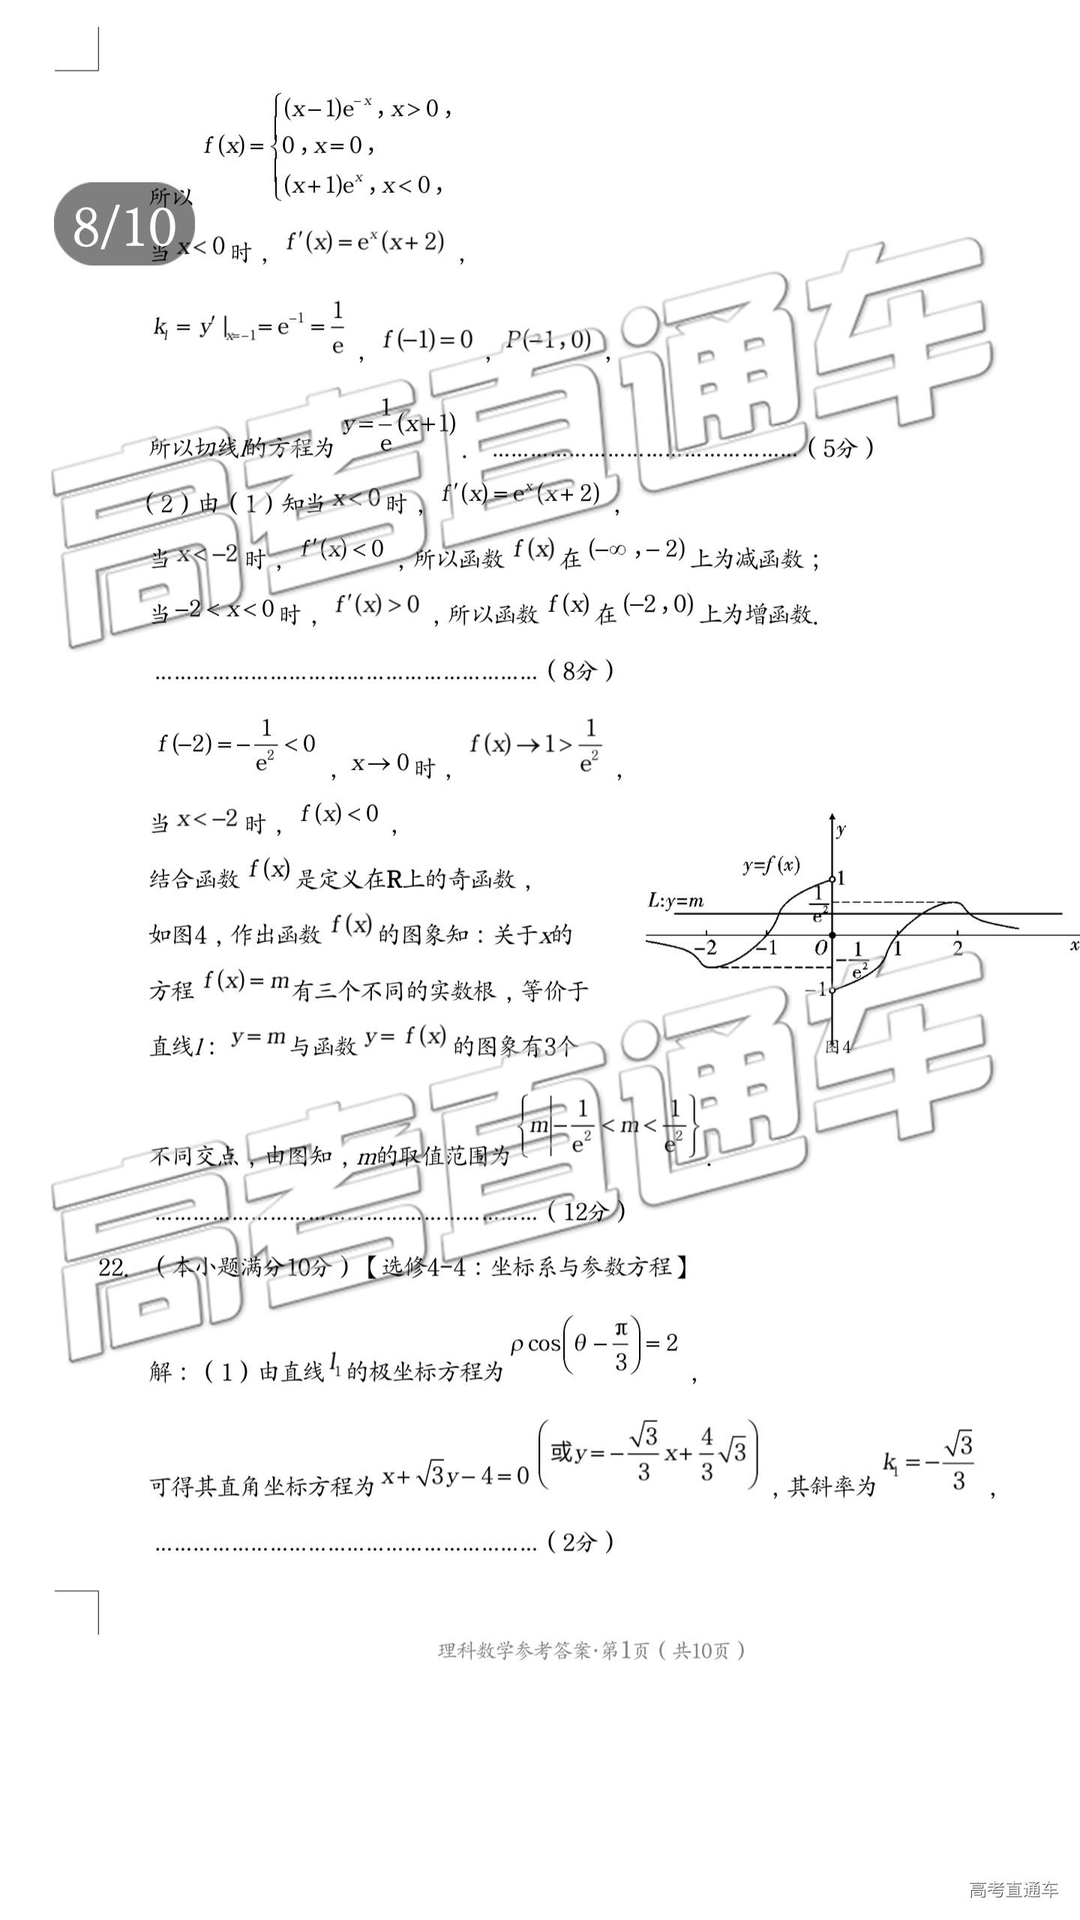 所以 f(x)={(x−1)e^{−x}, x>0,
0, x=0,
(x+1)e^x, x<0,
8/10
当 x<0 时, f′(x)=e^x(x+2),
k_1=y′|_{x=−1}=e^{−1}=1/e, f(−1)=0, P(−1,0),
所以切线l的方程为 y=1/e(x+1). ……………………………………(5分)
(2)由(1)知当 x<0 时, f′(x)=e^x(x+2),
当 x<−2 时, f′(x)<0,所以函数 f(x) 在 (−∞,−2) 上为减函数;
当 −2<x<0 时, f′(x)>0,所以函数 f(x) 在 (−2,0) 上为增函数.
……………………………………………………(8分)
f(−2)=−1/e²<0, x→0 时, f(x)→1>1/e²,
当 x<−2 时, f(x)<0,
结合函数 f(x) 是定义在R上的奇函数,
如图4,作出函数 f(x) 的图象知:关于x的
方程 f(x)=m 有三个不同的实数根,等价于
直线l: y=m 与函数 y=f(x) 的图象有3个
不同交点,由图知,m的取值范围为 {m|−1/e²<m<1/e²}.
……………………………………………………(12分)
y
y=f(x)
1
L:y=m
1/e²
−2 −1 O 1 2 x
−1/e²
−1
图4
22. (本小题满分10分)【选修4-4:坐标系与参数方程】
解:(1)由直线 l_1 的极坐标方程为 ρcos(θ−π/3)=2,
可得其直角坐标方程为 x+√3y−4=0(或y=−√3/3 x+4/3√3),其斜率为 k_1=−√3/3,
……………………………………………………(2分)
理科数学参考答案·第1页(共10页)
高考直通车
高考直通车
高考直通车